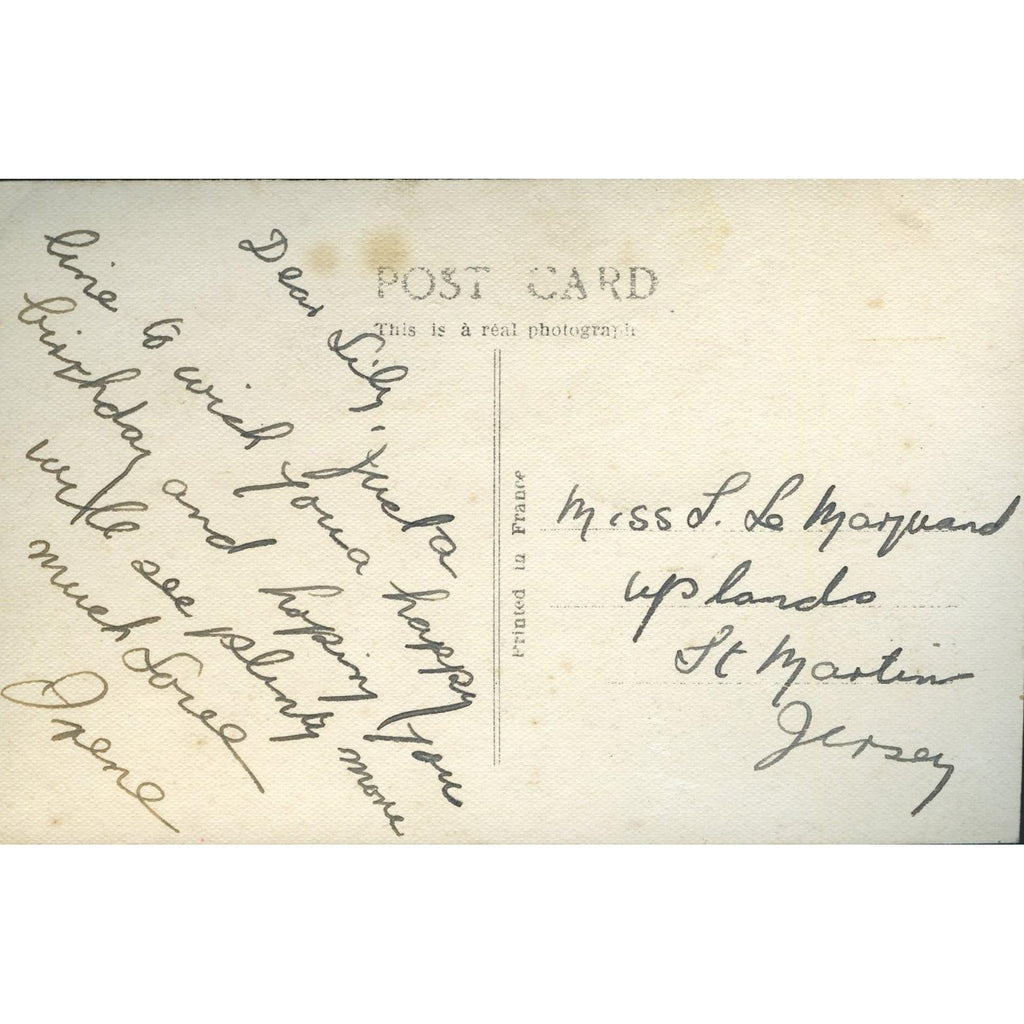 POST CARD
This is à réal photograph
Printed in France
Dear Lily, Just a
line to wish you a happy
birthday and hoping you
will see plenty more
much Love
Irene
Miss L. Le Marquand
Uplands
St Martin
Jersey